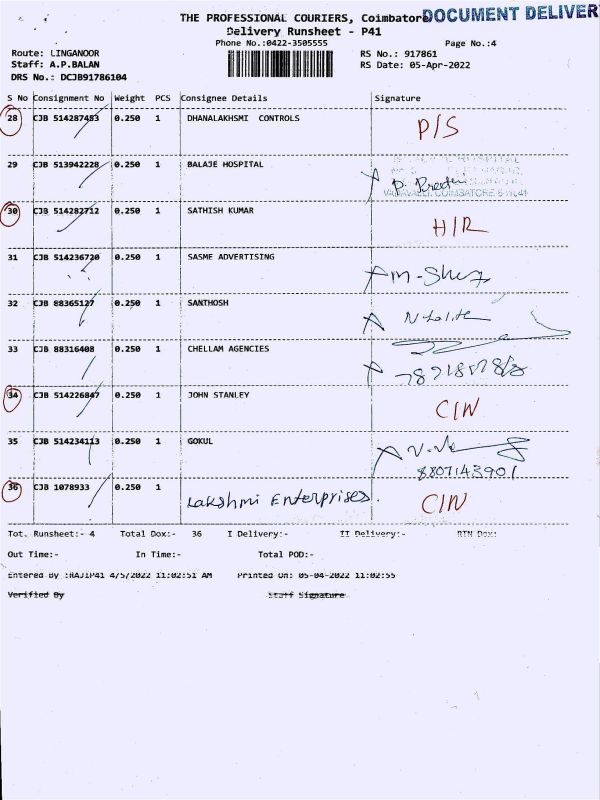 THE PROFESSIONAL COURIERS, Coimbatore DOCUMENT DELIVER
Delivery Runsheet - P41
Phone No.:0422-3505555 Page No.:4
Route: LINGANOOR RS No.: 917861
Staff: A.P.BALAN RS Date: 05-Apr-2022
DRS No.: DCJB91786104
S No Consignment No Weight PCS Consignee Details Signature
28 CJB 514287453 0.250 1 DHANALAKSHMI CONTROLS P/S
29 CJB 513942228 0.250 1 BALAJE HOSPITAL P. Preethi
30 CJB 514282712 0.250 1 SATHISH KUMAR H/R
31 CJB 514236720 0.250 1 SASME ADVERTISING
32 CJB 88365127 0.250 1 SANTHOSH
33 CJB 88316408 0.250 1 CHELLAM AGENCIES
34 CJB 514226847 0.250 1 JOHN STANLEY C/N
35 CJB 514234113 0.250 1 GOKUL
8807143901
36 CJB 1078933 0.250 1 Lakshmi Enterprises. C/N
Tot. Runsheet:- 4 Total Dox:- 36 I Delivery:- II Delivery:- RTN Dox:
Out Time:- In Time:- Total POD:-
Entered By :RAJIP41 4/5/2022 11:02:51 AM Printed On: 05-04-2022 11:02:55
Verified By Staff Signature